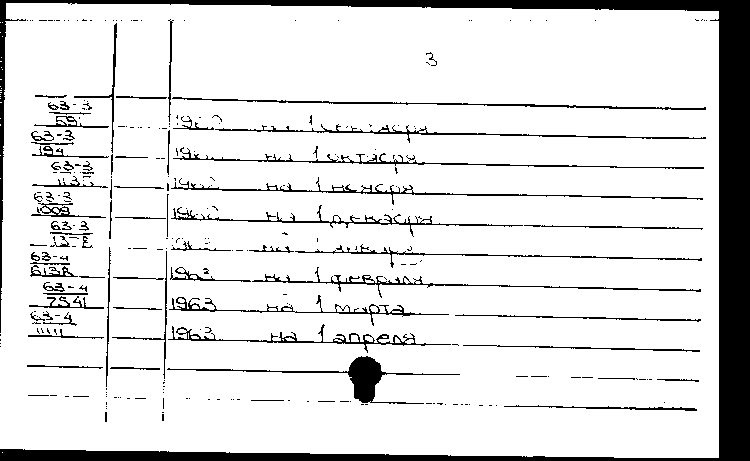 3
63-3
1962 на 1 сентября
63-3
194 на 1 октября
63-3
1135 1962 на 1 ноября
63-3
1009 1962 на 1 декабря
63-3
на 1 января
63-4
6138 1963 на 1 февраля
63-4
7541 1963 на 1 марта
63-4
1963 на 1 апреля